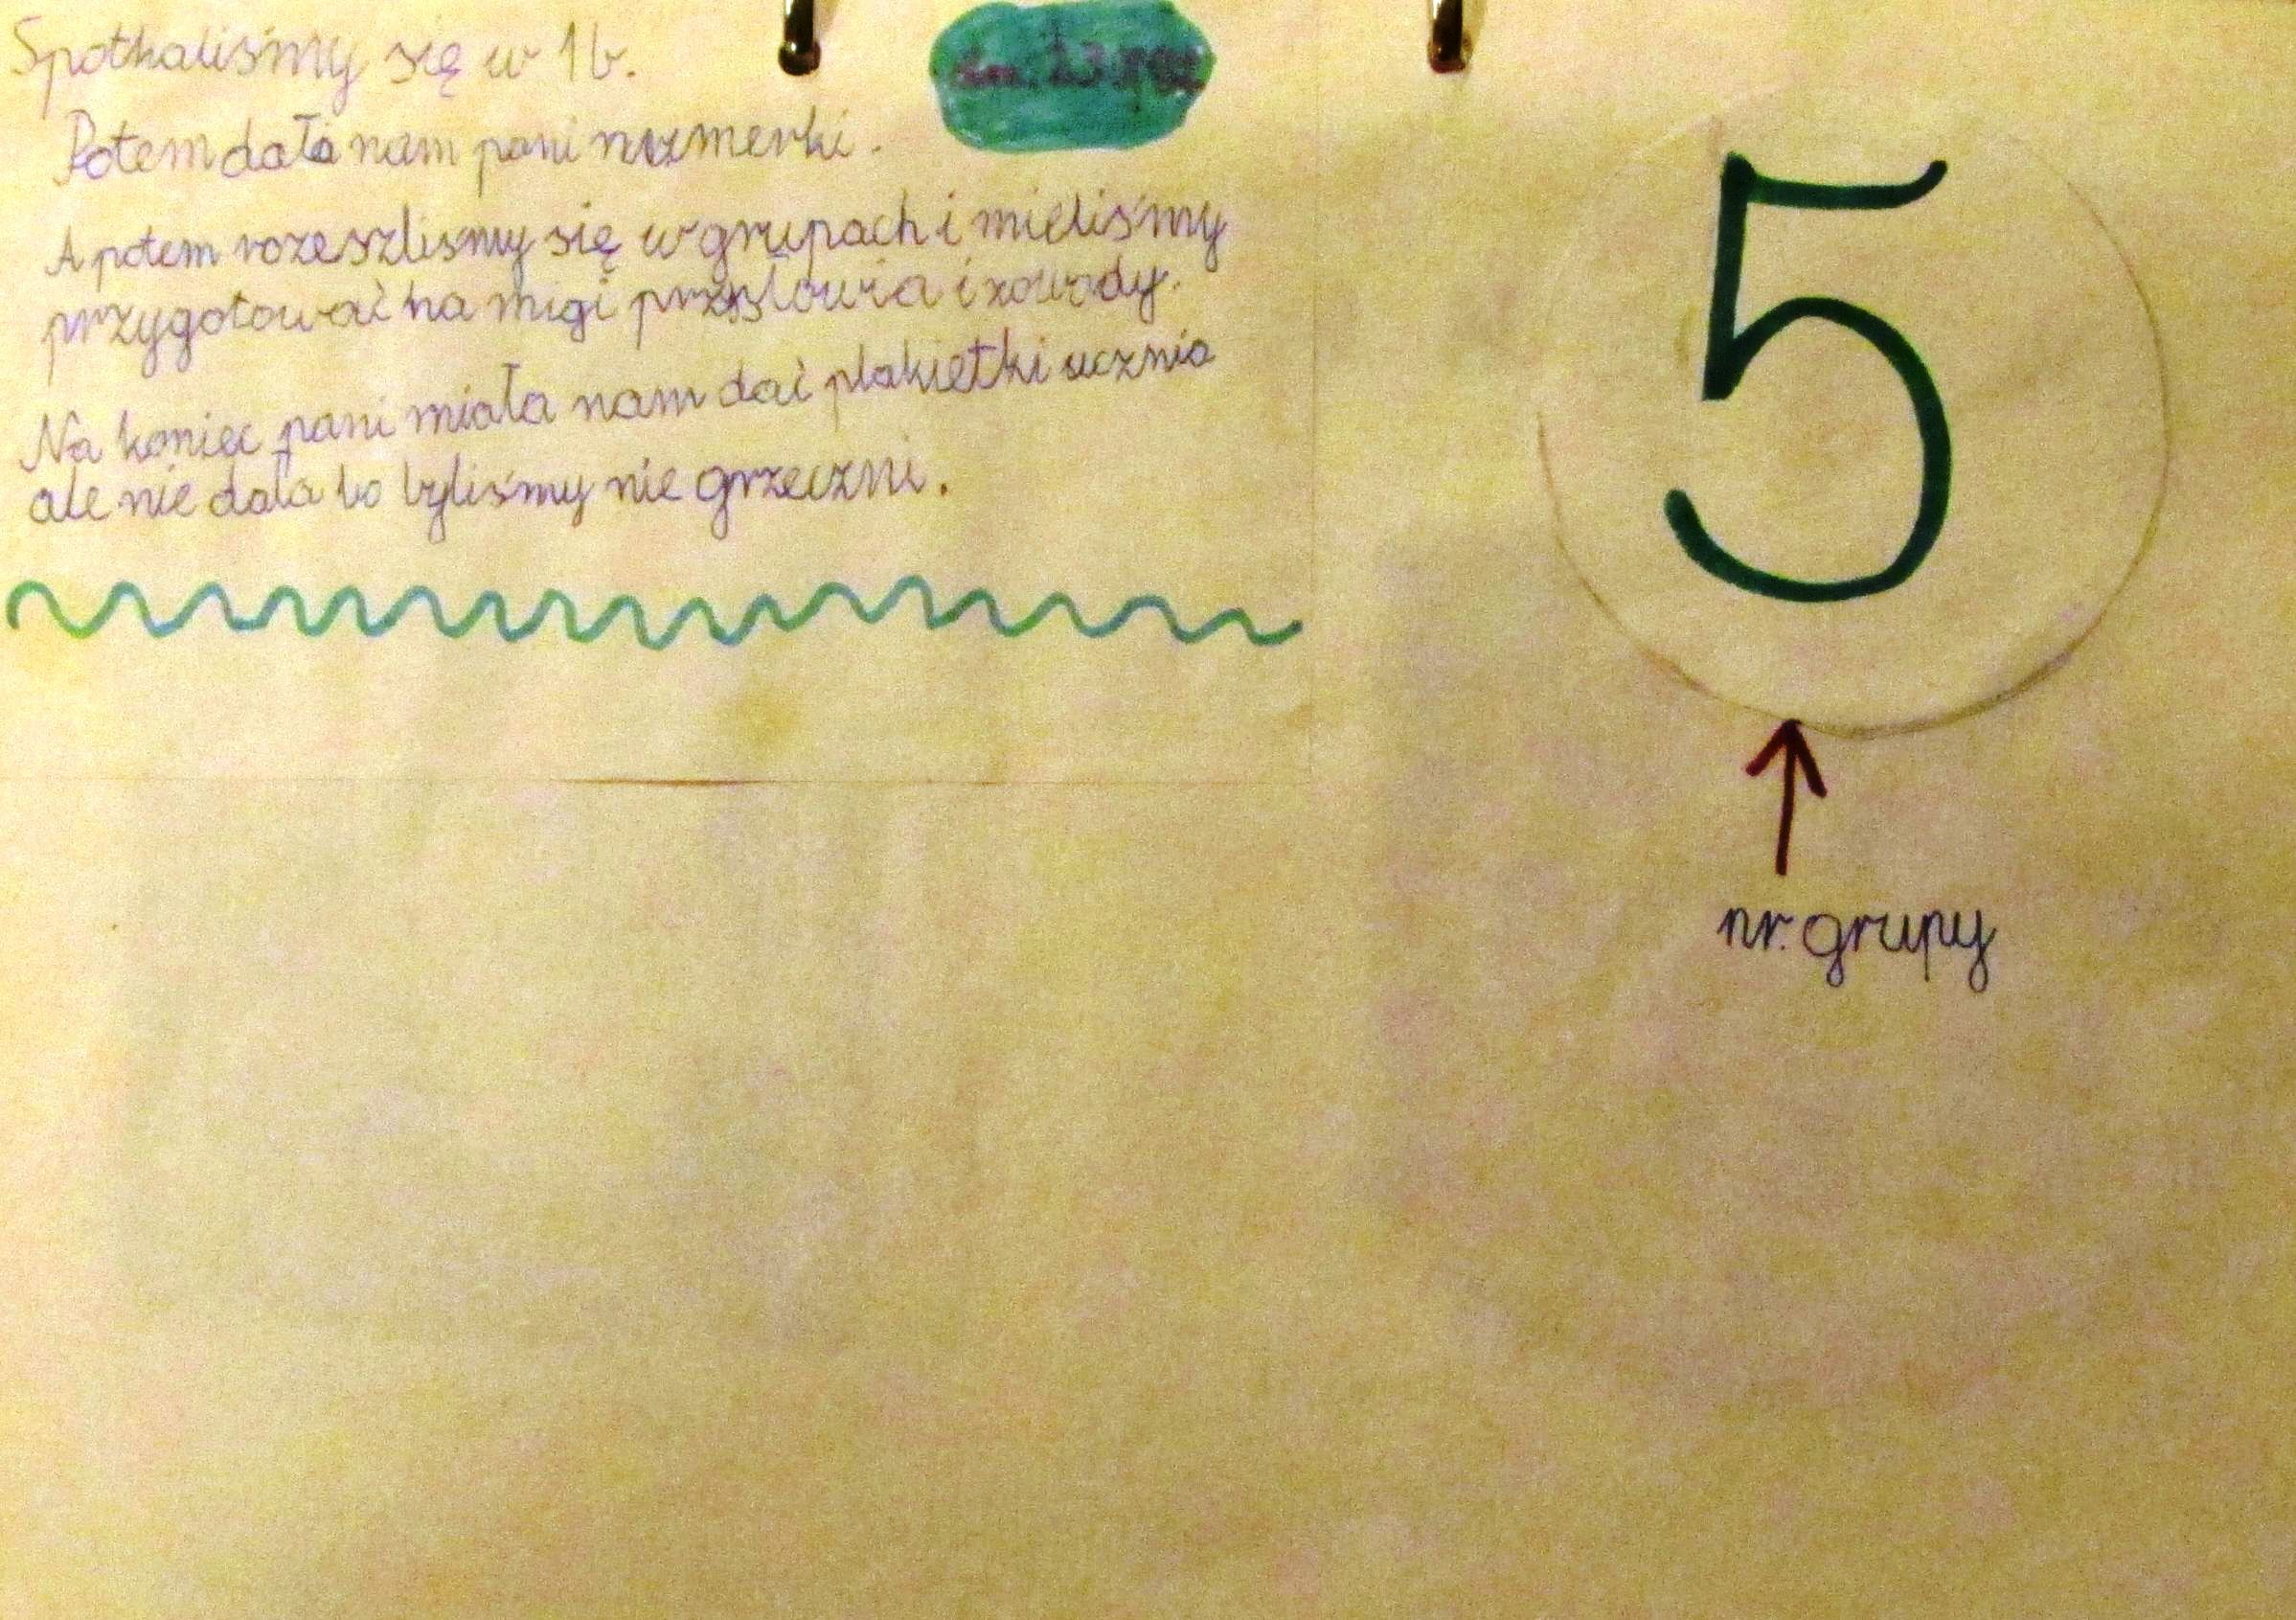 Spotkaliśmy się w 1b.
dn. 23
Potem dała nam pani numerki.
A potem rozeszliśmy się w grupach i mieliśmy
przygotować na migi przysłowia i zawody.
Na koniec pani miała nam dać plakietki ucznia
ale nie dała bo byliśmy nie grzeczni.
5
nr. grupy